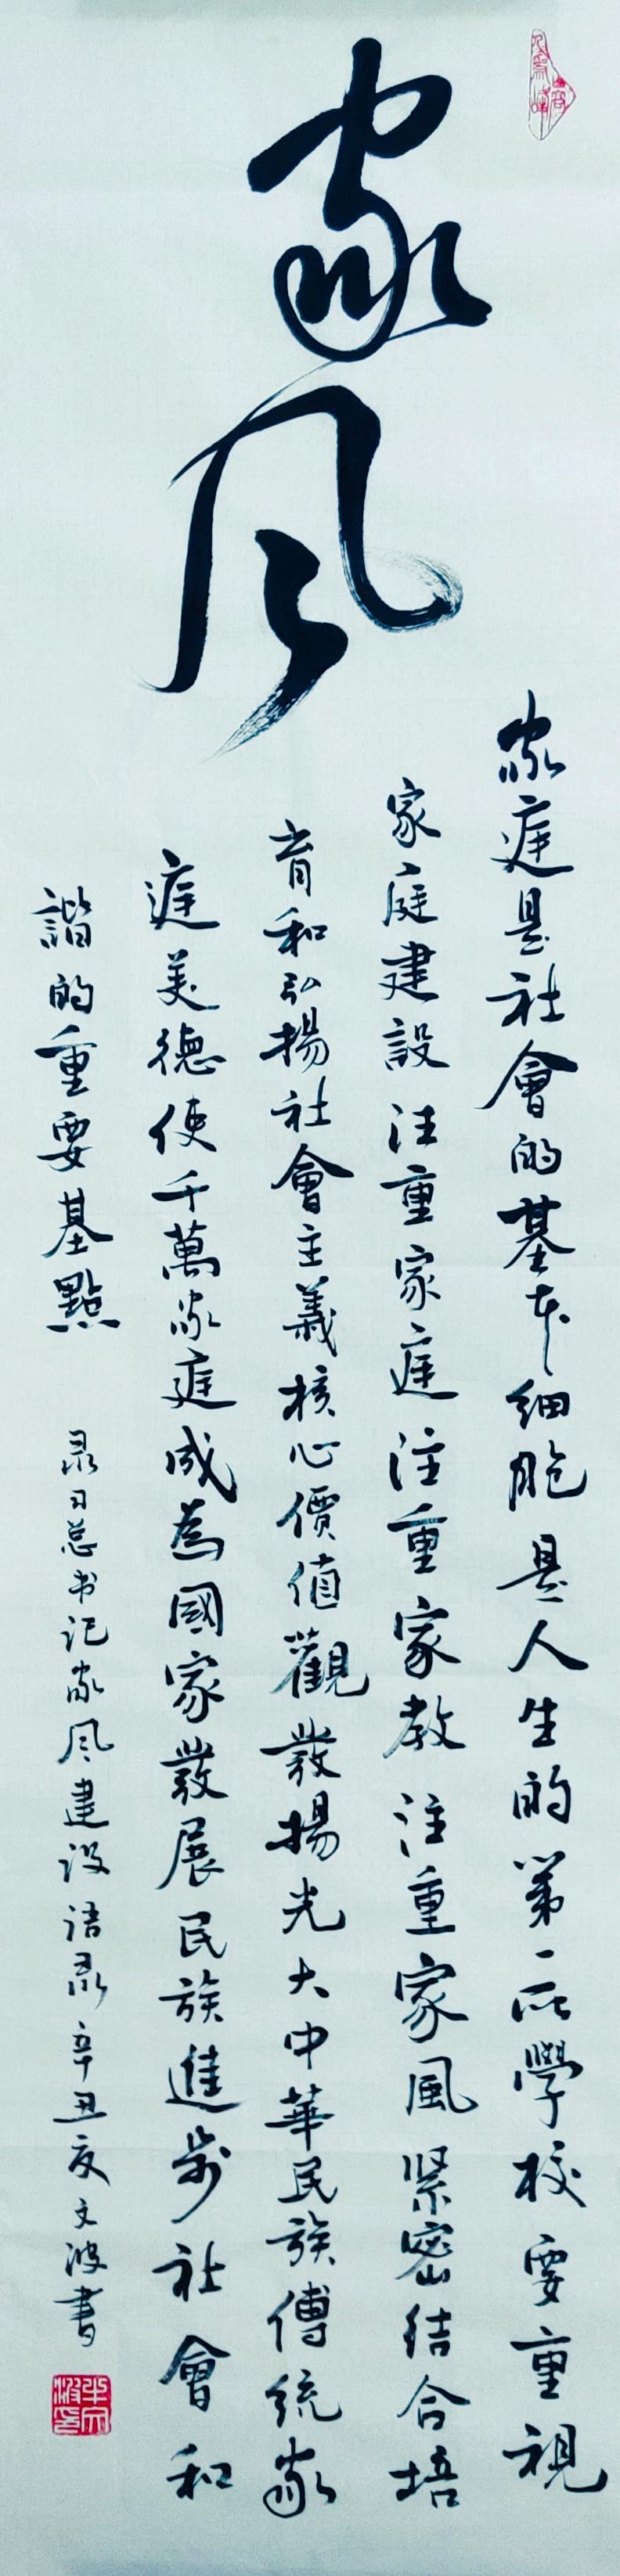 家风
家庭是社會的基本细胞是人生的第一所學校要重視
家庭建設注重家庭注重家教注重家風緊密结合培
育和弘揚社會主義核心價值觀發揚光大中華民族傳统家
庭美德使千萬家庭成為國家發展民族進步社會和
諧的重要基點
录习总书记家风建设语录辛丑夏文波書